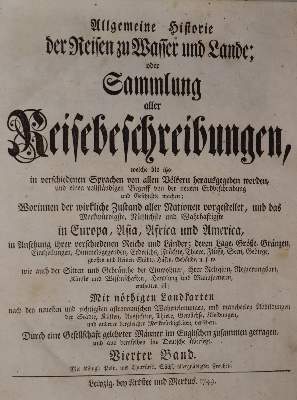 Allgemeine Historie
der Reisen zu Wasser und Lande;
oder
Sammlung
aller
Reisebeschreibungen,
welche bis itzo
in verschiedenen Sprachen von allen Völkern herausgegeben worden,
und einen vollständigen Begriff von der neuern Erdbeschreibung
und Geschichte machen;
Worinnen der wirkliche Zustand aller Nationen vorgestellet, und das
Merkwürdigste, Nützlichste und Wahrhaftigste
in Europa, Asia, Africa und America,
in Ansehung ihrer verschiedenen Reiche und Länder; deren Lage, Größe, Gränzen,
Eintheilungen, Himmelsgegenden, Erdreichs, Früchte, Thiere, Flüsse, Seen, Gebirge,
großen und kleinen Städte, Häfen, Gebäude, u. s. w.
wie auch der Sitten und Gebräuche der Einwohner, ihrer Religion, Regierungsart,
Künste und Wissenschaften, Handlung und Manufacturen,
enthalten ist;
Mit nöthigen Landkarten
nach den neuesten und richtigsten astronomischen Wahrnehmungen, und mancherley Abbildungen
der Städte, Küsten, Aussichten, Thiere, Gewächse, Kleidungen,
und anderer dergleichen Merkwürdigkeiten, versehen;
Durch eine Gesellschaft gelehrter Männer im Englischen zusammen getragen,
und aus demselben ins Deutsche übersetzt.
Vierter Band.
Mit Königl. Poln. und Churfürstl. Sächs. allergnädigster Freyheit.
Leipzig, bey Arkstee und Merkus. 1749.